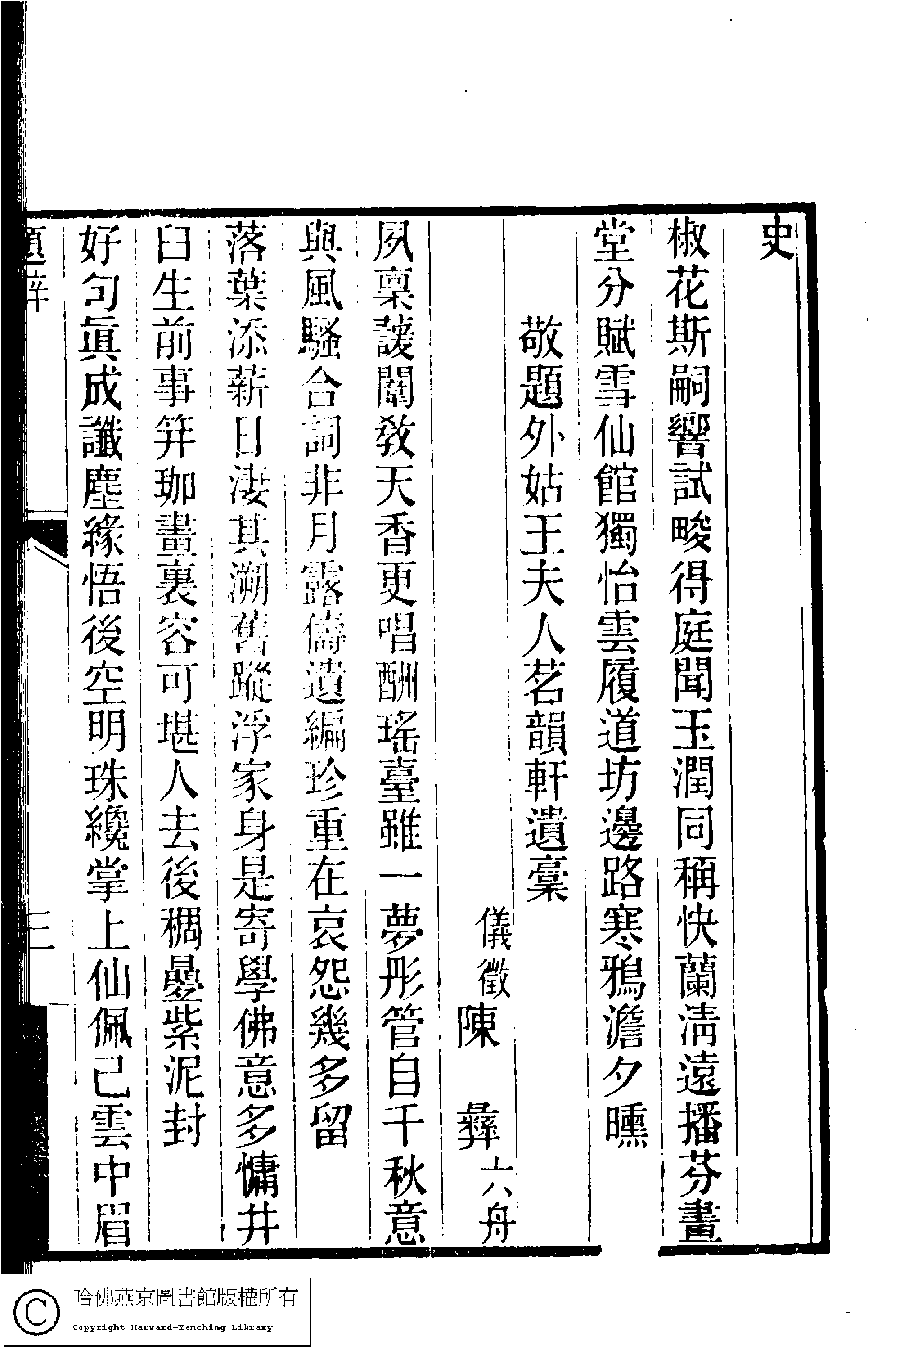 史
椒花斯嗣響試畯得庭聞玉潤同稱快蘭淸遠播芬畫
堂分賦雪仙館獨怡雲履道坊邊路寒鴉澹夕曛
敬題外姑王夫人茗韻軒遺稾
儀徵陳彝六舟
夙稟諼闈敎天香更唱酬瑤臺雖一夢彤管自千秋意
與風騷合詞非月露儔遺編珍重在哀怨幾多留
落葉添薪日淒其溯舊蹤浮家身是寄學佛意多慵井
臼生前事笄珈畫裏容可堪人去後稠疊紫泥封
好句眞成讖塵緣悟後空明珠纔掌上仙佩已雲中眉
題辭
三
哈佛燕京圖書館版權所有
Copyright Harvard-Yenching Library